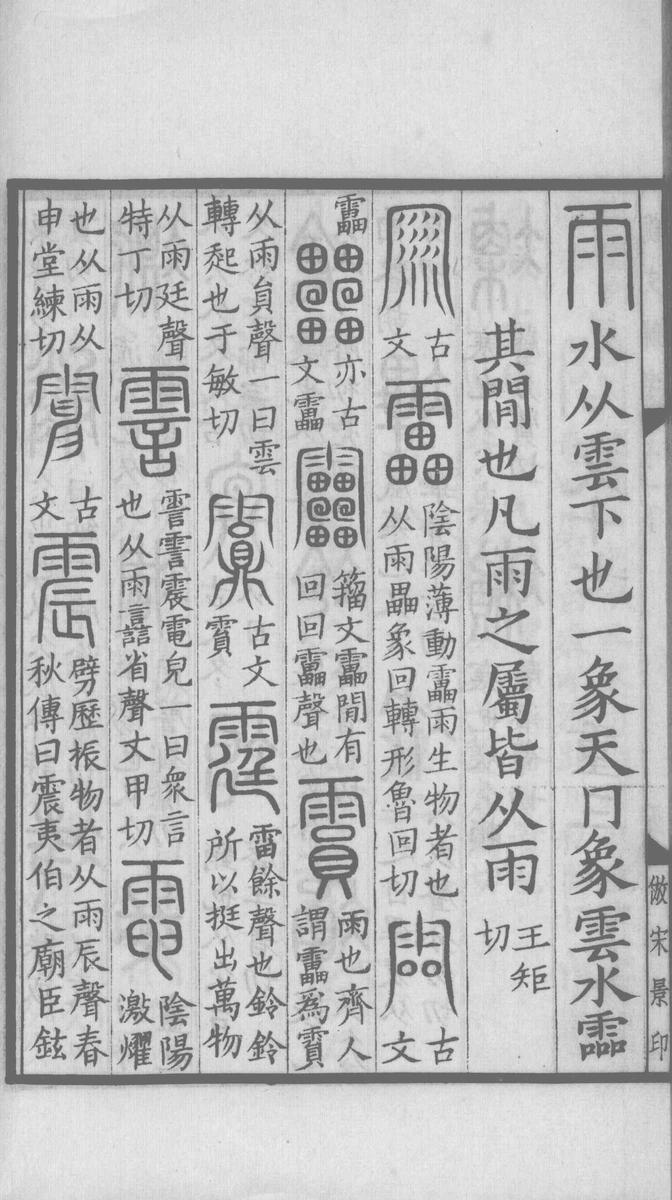 倣宋景印
雨水从雲下也一象天冂象雲水霝
其閒也凡雨之屬皆从雨王矩切
古文靁陰陽薄動靁雨生物者也从雨畾象回轉形魯回切古文
靁亦古文靁籒文靁閒有回回靁聲也霣雨也齊人謂靁爲霣
从雨貟聲一曰雲轉起也于敏切古文霣霆雷餘聲也鈴鈴所以挺出萬物
从雨廷聲特丁切霅霅霅震電皃一曰衆言也从雨譶省聲丈甲切電陰陽激燿
也从雨从申堂練切古文震劈歷振物者从雨辰聲春秋傳曰震夷伯之廟臣鉉